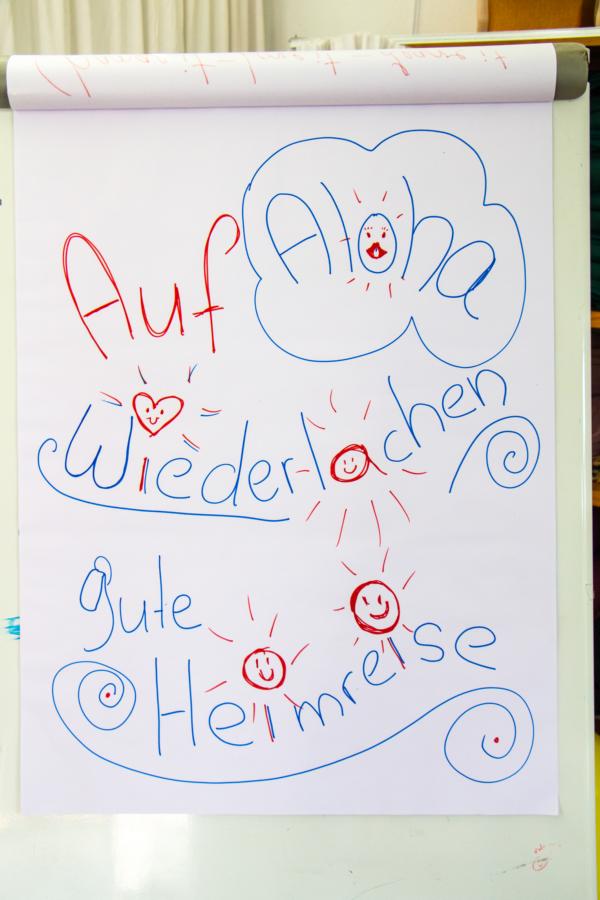 Auf Aloha
Wiederlachen
gute
Heimreise